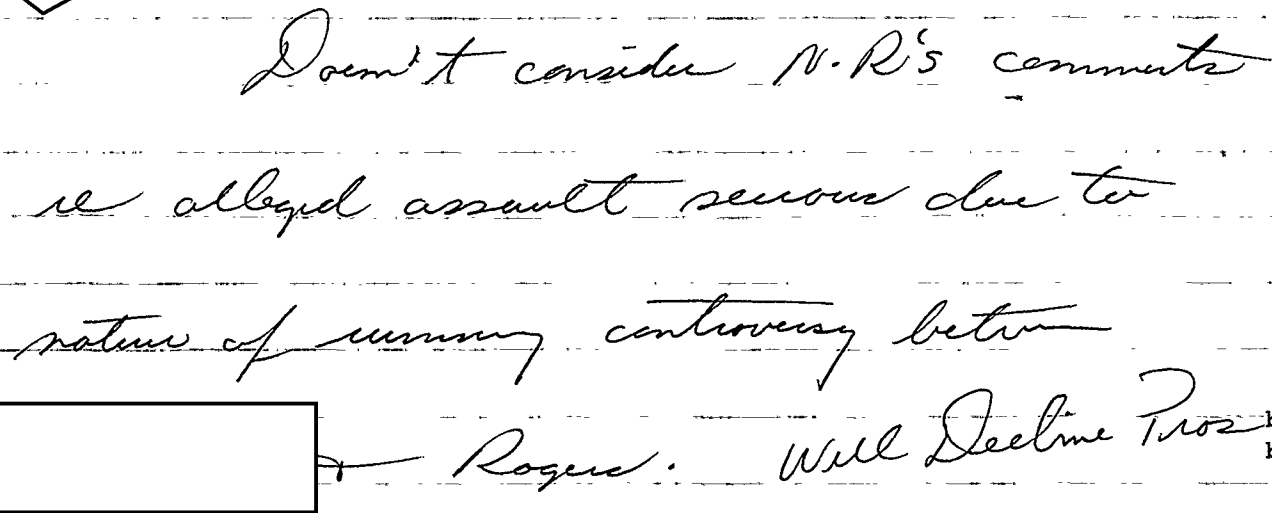 Doesn't consider N.R's comments
re alleged assault serious due to
nature of running controversy between
+ Rogers. Will Decline Pros
b
b